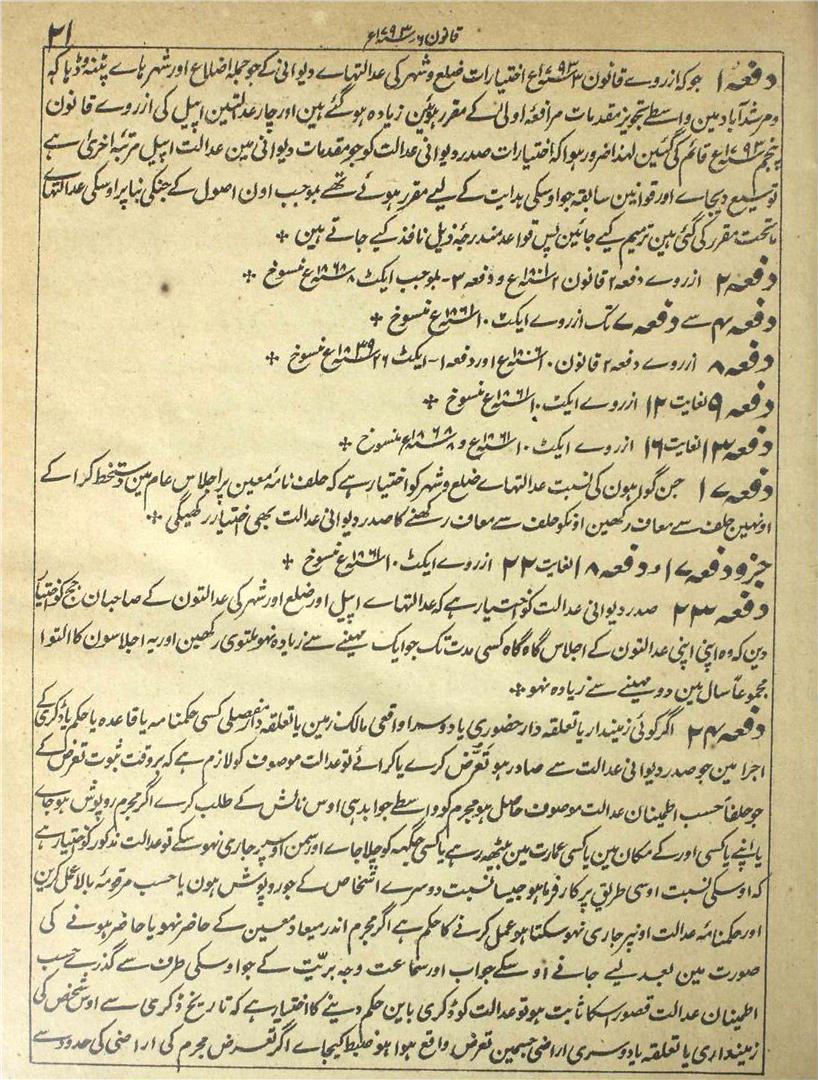 قانون ۶ سنہ ۱۷۹۳ع
۲۱
دفعہ ۱ جو کہ ازروے قانون ۳ سنہ ۱۷۹۳ع اختیارات ضلع و شہر کی عدالتہاے دیوانی کے جو جملہ اضلاع اور شہرہاے پٹنہ و ڈہاکہ
و مرشدآباد مین واسطے تجویز مقدمات مرافعۂ اولیٰ کے مقرر ہوئین زیادہ ہو گئے ہین اور چار عدالتین اپیل کی ازروے قانون
پنجم سنہ ۱۷۹۳ع قائم کی گئین لہذا ضرور ہوا کہ اختیارات صدر دیوانی عدالت کو جو مقدمات دیوانی مین عدالت اپیل مرتبۂ اخریٰ ہے
توسیع دیجاے اور قوانین سابقہ جو اوسکی ہدایت کے لیے مقرر ہوئے تھے بموجب اون اصول کے جنکی بنا پر اوسکی عدالتہاے
ماتحت مقرر کی گئی ہین ترمیم کیے جائین پس قواعد مندرجۂ ذیل نافذ کیے جاتے ہین ✣
دفعہ ۲ ازروے دفعہ ۲ قانون ۲ سنہ ۱۸۰۱ع و دفعہ ۳ - بموجب ایکٹ ۸ سنہ ۱۸۶۸ع منسوخ ✣
دفعہ ۴ سے دفعہ ۷ تک ازروے ایکٹ ۱۰ سنہ ۱۸۶۱ع منسوخ ✣
دفعہ ۸ ازروے دفعہ ۲ قانون ۱۰ سنہ ۱۸۰۶ع اور دفعہ ۱ - ایکٹ ۲۶ سنہ ۱۸۳۹ع منسوخ ✣
دفعہ ۹ لغایت ۱۲ ازروے ایکٹ ۱۰ سنہ ۱۸۶۱ع منسوخ ✣
دفعہ ۱۳ لغایت ۱۶ ازروے ایکٹ ۱۰ سنہ ۱۸۶۱ع و ۸ سنہ ۱۸۶۸ع منسوخ ✣
دفعہ ۱۷ جن گواہون کی نسبت عدالتہاے ضلع و شہر کو اختیار ہے کہ حلف نامۂ معین پر اجلاس عام مین دستخط کرا کے
اونہین حلف سے معاف رکھین اونکو حلف سے معاف رکھنے کا صدر دیوانی عدالت بھی اختیار رکھیگی ✣
جزو دفعہ ۱۷ و دفعہ ۱۸ لغایت ۲۲ ازروے ایکٹ ۱۰ سنہ ۱۸۶۱ع منسوخ ✣
دفعہ ۲۳ صدر دیوانی عدالت کو اختیار ہے کہ عدالتہاے اپیل اور ضلع اور شہر کی عدالتون کے صاحبان جج کو اختیار
دین کہ وہ اپنی اپنی عدالتون کے اجلاس گاہ گاہ کسی مدت تک جو ایک مہینے سے زیادہ نہو ملتوی رکھین اور یہ اجلاسون کا التوا
مجموعاً سال مین دو مہینے سے زیادہ نہو ✣
دفعہ ۲۴ اگر کوئی زمیندار یا تعلقہ دار حضوری یا دوسرا واقعی مالک زمین یا تعلقہ دار مفصلی کسی حکمنامہ یا قاعدہ یا حکم یا ڈکری کے
اجرا مین جو صدر دیوانی عدالت سے صادر ہو تعرض کرے یا کرائے تو عدالت موصوف کو لازم ہے کہ بروقت ثبوت تعرض کے
جو حلفاً حسب اطمینان عدالت موصوف حاصل ہو مجرم کو واسطے جوابدہی اوس نالش کے طلب کرے اگر مجرم روپوش ہو جاے
یا اپنے یا کسی اور کے مکان مین یا کسی عمارت مین بیٹھ رہے یا کسی جگہہ کو چلا جاے اور سمن اوسپر جاری نہوسکے تو عدالت مذکور کو اختیار ہے
کہ اوسکی نسبت اوسی طریق پر کارفرما ہو جیسا نسبت دوسرے اشخاص کے جو روپوش ہون یا حسب مرقومۂ بالا عمل کرین
اور حکمنامۂ عدالت اونپر جاری نہو سکتا ہو عمل کرنے کا حکم ہے اگر مجرم اندر میعاد معین کے حاضر نہو یا حاضر ہونے کی
صورت مین بعد لیے جانے اوسکے جواب اور سماعت وجہ بریّت کے جو اوسکی طرف سے گذرے حسب
اطمینان عدالت قصور اسکا ثابت ہو تو عدالت کو ڈکری باین حکم دینے کا اختیار ہے کہ تاریخ ڈکری سے اوس شخص کی
زمینداری یا تعلقہ یا دوسری اراضی جسمین تعرض واقع ہوا ہو ضبط کیجاے اگر تعرض مجرم کی اراضی کی حدود سے